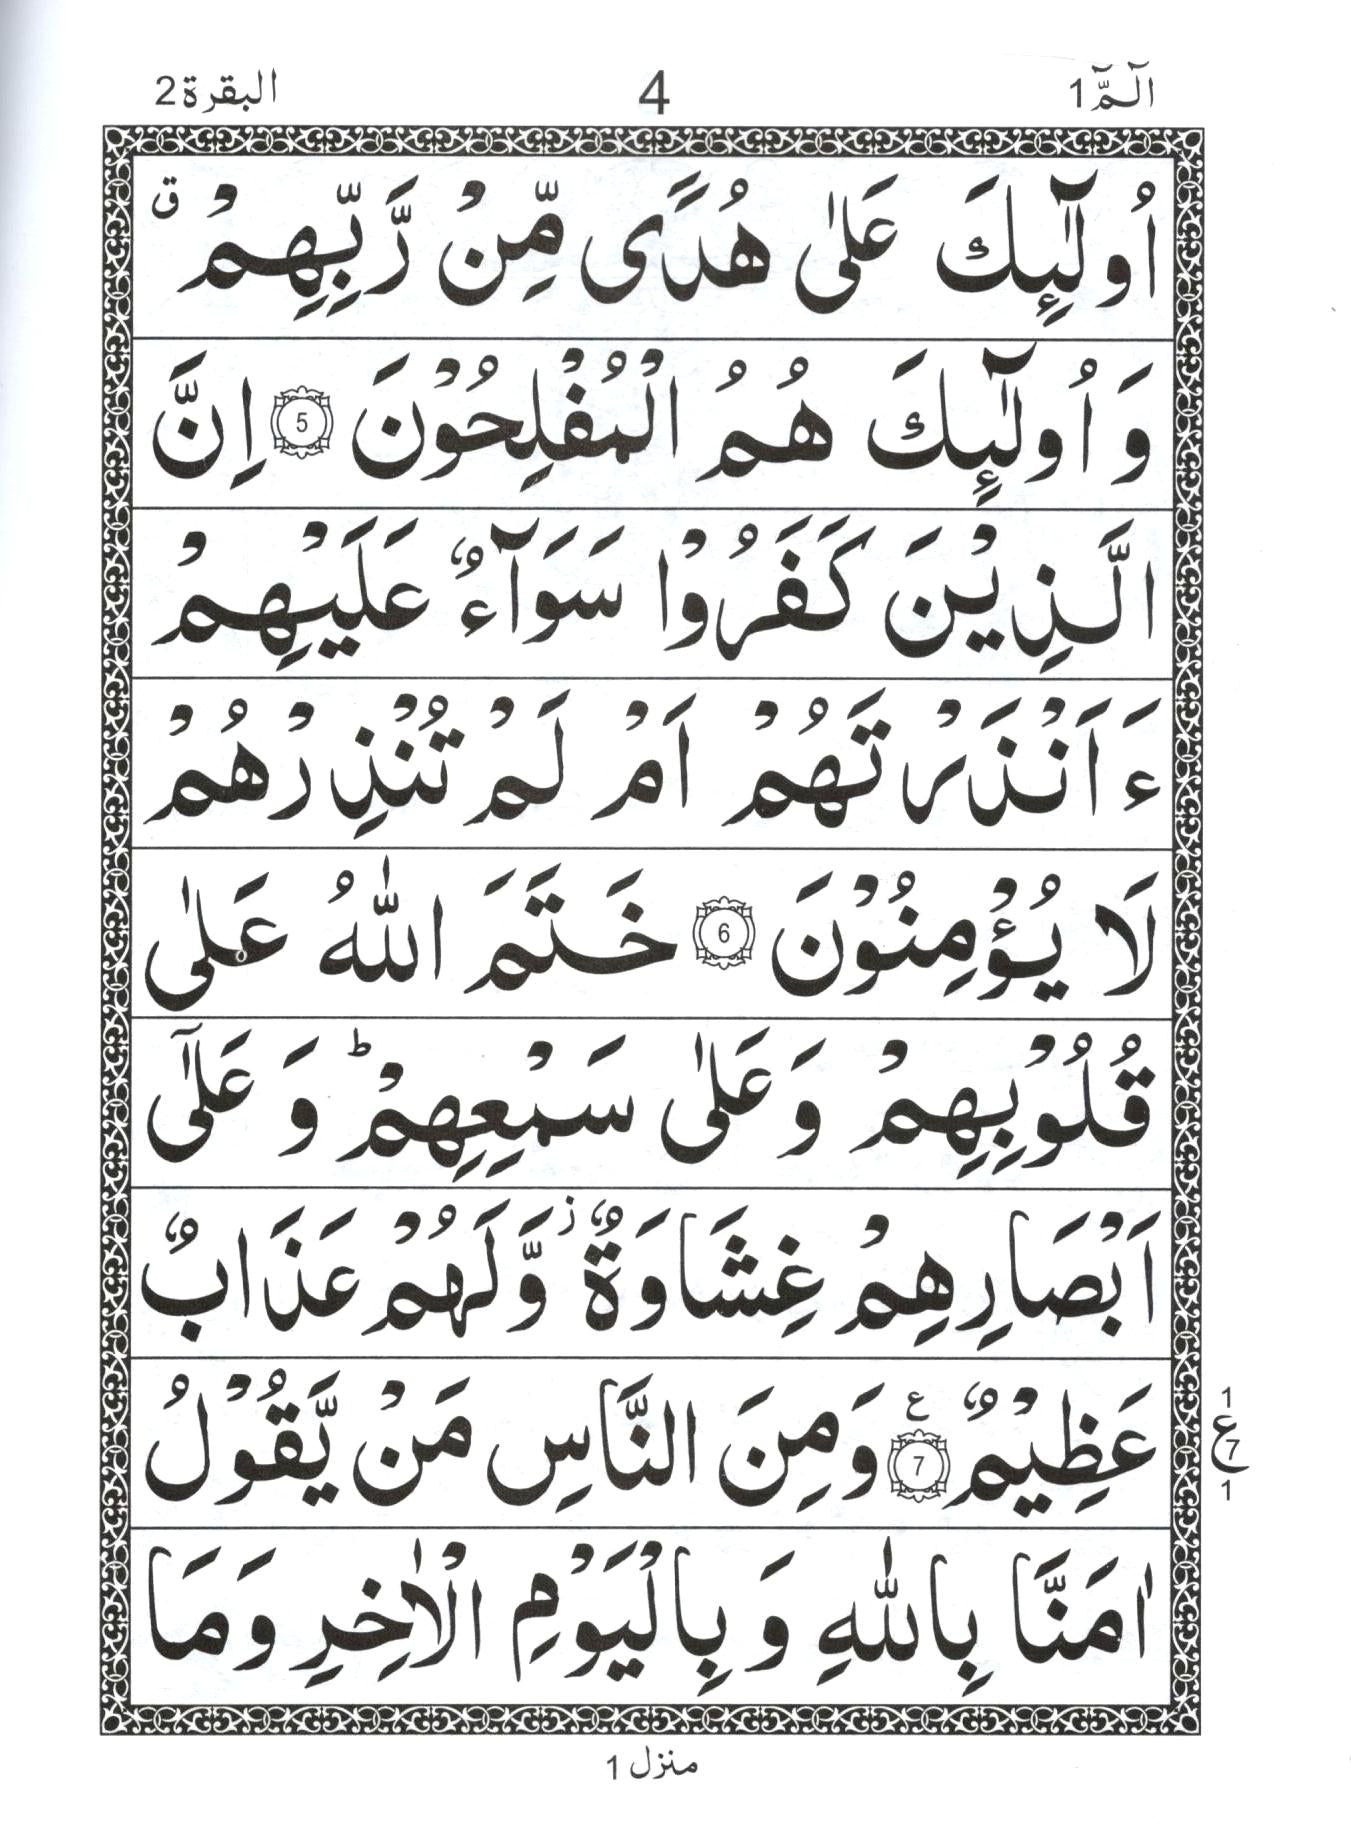 الٓمّٓ 1
4
البقرة 2
اُولٰٓئِكَ عَلٰی هُدًی مِّنْ رَّبِّهِمْ ۗق
وَ اُولٰٓئِكَ هُمُ الْمُفْلِحُوْنَ 5 اِنَّ
الَّذِیْنَ كَفَرُوْا سَوَآءٌ عَلَیْهِمْ
ءَاَنْذَرْتَهُمْ اَمْ لَمْ تُنْذِرْهُمْ
لَا یُؤْمِنُوْنَ 6 خَتَمَ اللّٰهُ عَلٰی
قُلُوْبِهِمْ وَعَلٰی سَمْعِهِمْ ؕ وَ عَلٰۤی
اَبْصَارِهِمْ غِشَاوَةٌ ز وَّلَهُمْ عَذَابٌ
عَظِیْمٌ 7 ع وَمِنَ النَّاسِ مَنْ یَّقُوْلُ
1
ع 7
1
اٰمَنَّا بِاللّٰهِ وَ بِالْیَوْمِ الْاٰخِرِ وَمَا
منزل 1